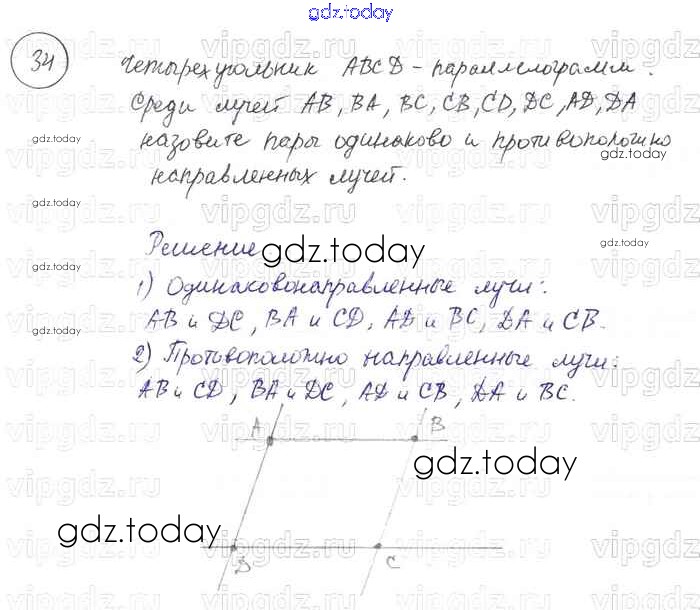 gdz.today
34
Четырехугольник ABCD - параллелограмм.
Среди лучей AB, BA, BC, CB, CD, DC, AD, DA
назовите пары одинаково и противоположно
направленных лучей.
Решение
1) Одинаковонаправленные лучи:
AB и DC, BA и CD, AD и BC, DA и CB.
2) Противоположно направленные лучи:
AB и CD, BA и DC, AD и CB, DA и BC.
A B
D C
gdz.today
gdz.today
gdz.today
gdz.today
gdz.today
gdz.today
gdz.today
gdz.today
gdz.today
gdz.today
vipgdz.ru